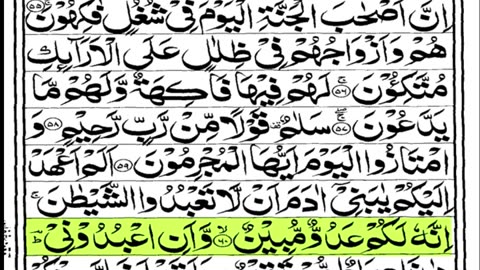 اِنَّ اَصۡحٰبَ الۡجَنَّةِ الۡيَوۡمَ فِىۡ شُغُلٍ فٰكِهُوۡنَ ۝۵۵
هُمۡ وَاَزۡوَاجُهُمۡ فِىۡ ظِلٰلٍ عَلَى الۡاَرَآٮِٕكِ
مُتَّكِـُٔوۡنَ ۝۵۶ لَهُمۡ فِيۡهَا فَاكِهَةٌ وَّلَهُمۡ مَّا
يَدَّعُوۡنَ ۝۵۷ سَلٰمٌ قَوۡلًا مِّنۡ رَّبٍّ رَّحِيۡمٍ ۝۵۸ وَ
امۡتَازُوا الۡيَوۡمَ اَيُّهَا الۡمُجۡرِمُوۡنَ ۝۵۹ اَلَمۡ اَعۡهَدۡ
اِلَيۡكُمۡ يٰبَنِىۡۤ اٰدَمَ اَنۡ لَّا تَعۡبُدُوا الشَّيۡطٰنَ ۚ
اِنَّهٗ لَكُمۡ عَدُوٌّ مُّبِيۡنٌ ۙ ۝۶۰ وَّاَنِ اعۡبُدُوۡنِىۡ ؕ